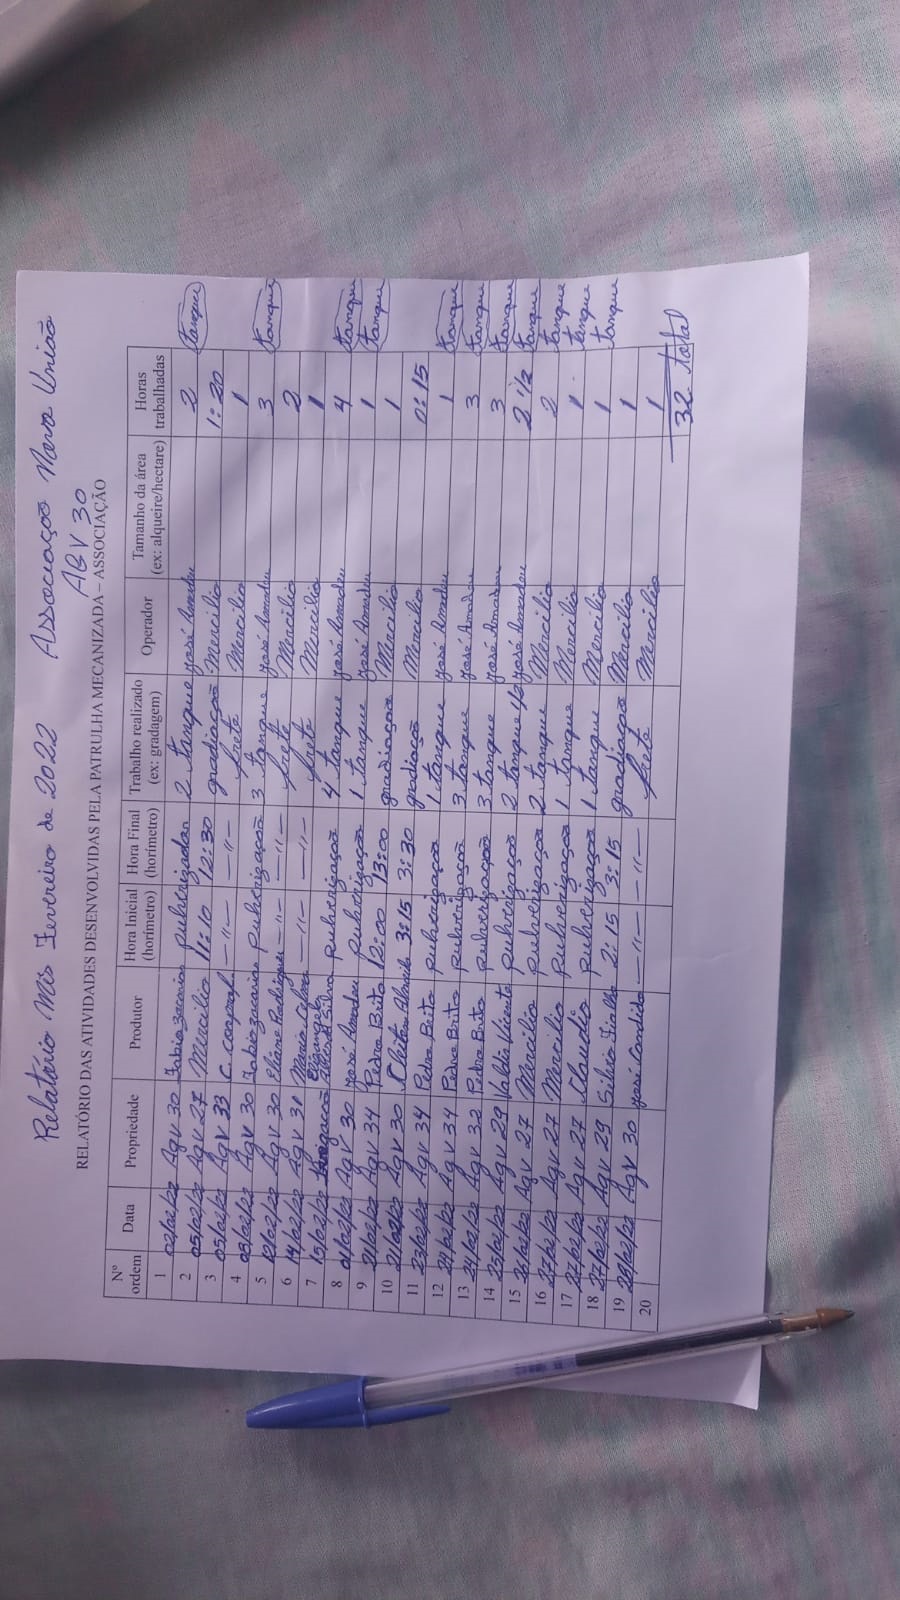 Relatório Mês Fevereiro de 2022 Associação Nova União
AGV 30
RELATÓRIO DAS ATIVIDADES DESENVOLVIDAS PELA PATRULHA MECANIZADA – ASSOCIAÇÃO
Nº ordem Data Propriedade Produtor Hora Inicial (horímetro) Hora Final (horímetro) Trabalho realizado (ex: gradagem) Operador Tamanho da área (ex: alqueire/hectare) Horas trabalhadas
1 02/02/22 Agv 30 Fabio zacarias 2 tanque José Amadeu 2 tanque
2 05/02/22 Agv 27 Mercilio 11:10 12:30 gradiação Mercilio 1:20
3 05/02/22 Agv 33 –"– –"– frete Mercilio 1
4 08/02/22 Agv 30 Fabio zacarias pulverização 3 tanque José Amadeu 3 tanque
5 12/02/22 Agv 30 Eliane Rodrigues –"– –"– frete Mercilio 2
6 14/02/22 Agv 31 Maria –"– –"– frete Mercilio 1
7 15/02/22 Silva pulverização 4 tanque José Amadeu 4 tanque
8 Agv 30 José Amadeu pulverização 1 tanque José Amadeu 1 tanque
9 21/02/22 Agv 34 Pedro Brito 12:00 13:00 gradiação Mercilio 1
10 21/02/22 Agv 30 3:15 3:30 gradiação Mercilio 0:15
11 23/02/22 Agv 34 Pedro Brito pulverização 1 tanque José Amadeu 1 tanque
12 24/02/22 Agv 34 Pedro Brito pulverização 3 tanque José Amadeu 3 tanque
13 24/02/22 Agv 32 Pedro Brito pulverização 3 tanque José Amadeu 3 tanque
14 25/02/22 Agv 29 Valdir Vicente pulverização 2 tanque 1/2 José Amadeu 2 1/2 tanque
15 26/02/22 Agv 27 Mercilio pulverização 2 tanque Mercilio 2 tanque
16 27/02/22 Agv 27 Mercilio pulverização 1 tanque Mercilio 1 tanque
17 27/02/22 Agv 27 Claudio pulverização 1 tanque Mercilio 1 tanque
18 27/02/22 Agv 29 Silvio 2:15 3:15 gradiação Mercilio 1
19 28/02/22 Agv 30 José Candido –"– –"– frete Mercilio 1
20
32 total